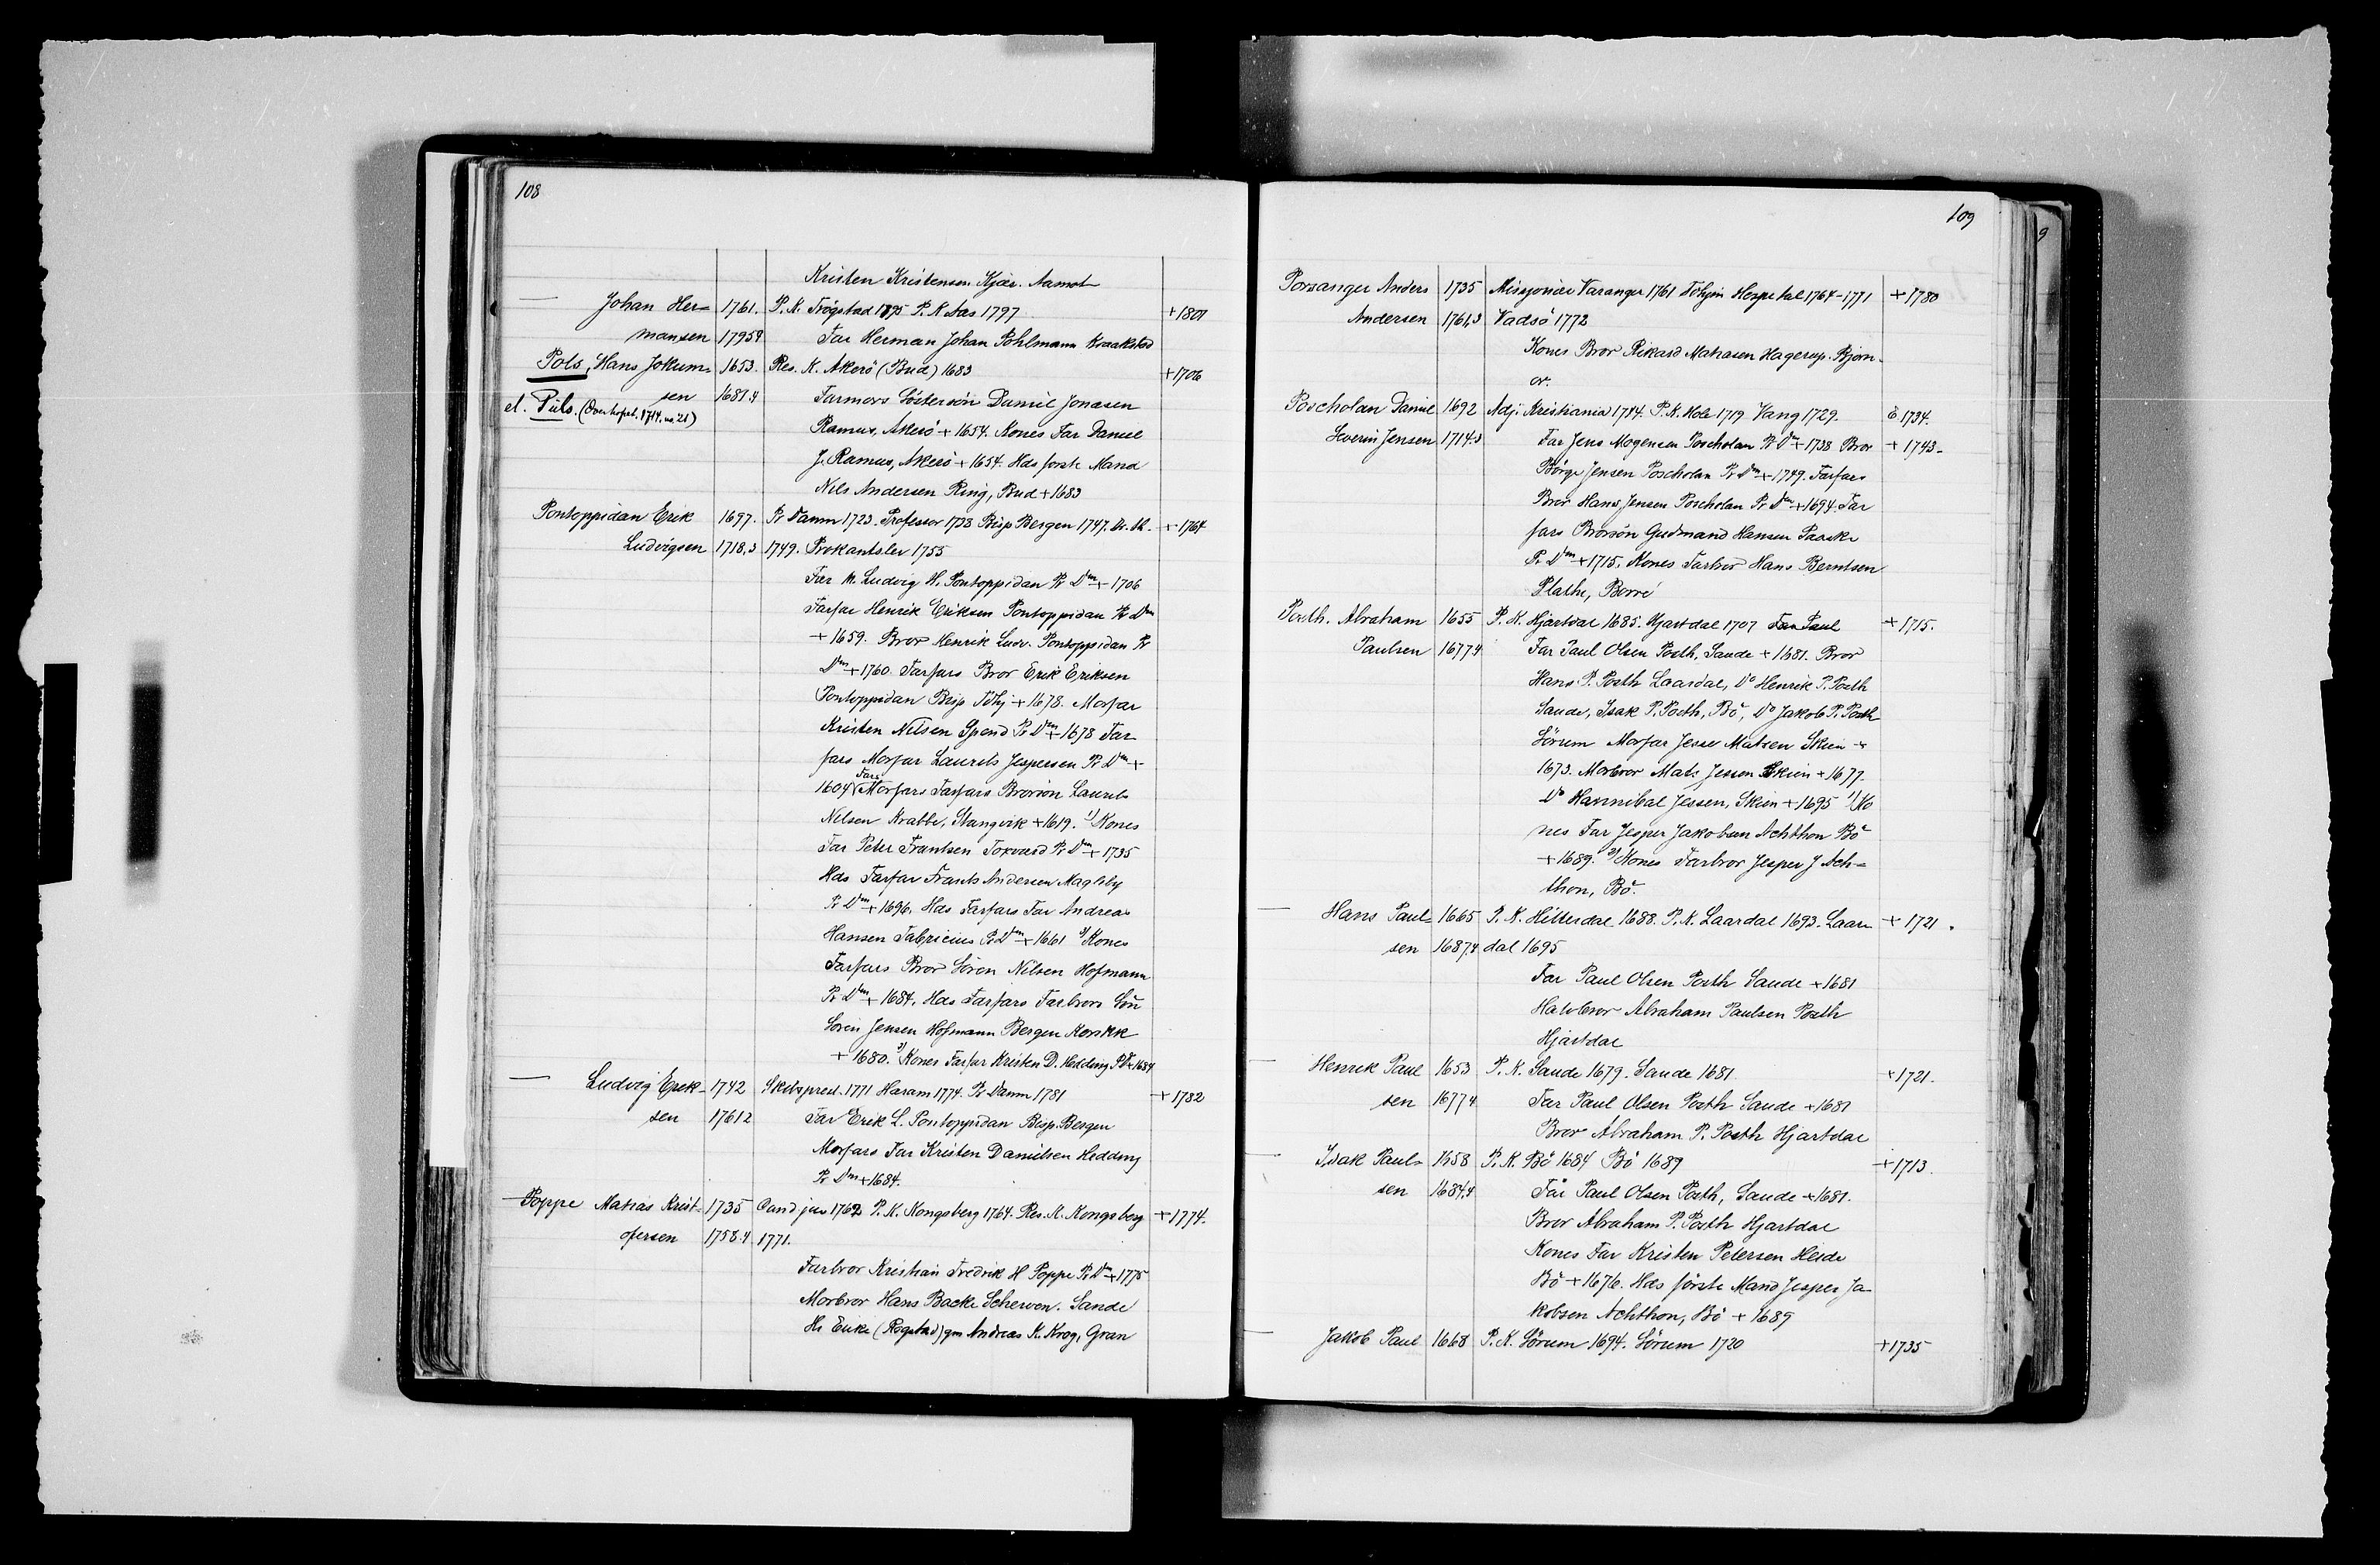 108
Kristen Kristensen Kjær. Aamot
— Johan Her= 1761. P. K. Trögstad 1795 P. K Aas 1797 +1801
mansen 1795 Far Herman Johan Pohlmann Kraakstad
Pols, Hans Jokum= 1653. Res. K. Akerö (Bud) 1683 +1706
sen 1681.4 Farmors Söstersön Daniel Jonasen
el. Puls. (Overhofret. 1714. no 21)
Ramus, Akerö + 1654. Kones Far Daniel
J. Ramus, Akerö + 1654. Hds förste Mand
Nils Andersen Ring, Bud + 1683
Pontoppidan Erik 1697. Pr Danm 1723. Professor 1738 Bisp Bergen 1747. Dr. th. +1764
Ludvigsen 1718.3 1749. Prokantsler 1755
Far M. Ludvig H. Pontoppidan Pr Dm + 1706
Farfar Henrik Eriksen Pontoppidan Pr Dm
+ 1659. Bror Henrik Ludv. Pontoppidan Pr
Dm + 1760. Farfars Bror Erik Eriksen
Pontoppidan Bisp Tdhj + 1678. Morfar
Kristen Nilsen Spend Pr Dm + 1678 Far
fars Morfar Laurits Jespersen Pr Dm +
1604 Fars Morfars Farfars Brorsön Laurits
Nilsen Krabbe, Stangvik + 1619. 1) Kones
Far Peter Frantsen Toxværd Pr Dm + 1735
Hds Farfar Frants Andersen Magleby
Pr Dm + 1696. Hds Farfars Far Andreas
Hansen Fabricius Pr Dm + 1661 2) Kones
Farfars Bror Sören Nilsen Hofmann
Pr Dm + 1684. Hds Farfars Farbrors Sön
Sören Jensen Hofmann Bergen Korskk
+ 1680. 3) Kones Farfar Kristen D. Hedding P Dm 1684
— Ludvig Erik- 1742 Skibspræst. 1771 Haram 1774. Pr Danm 1781 +1782
sen 1761 2 Far Erik L. Pontoppidan Bisp. Bergen
Morfars Far Kristen Danielsen Hedding
Pr Dm + 1684.
Poppe Matias Krist- 1735 Cand jur 1762 P. K. Kongsberg 1764. Res. K. Kongsberg +1774.
ofersen 1758.4 1771.
Farbror Kristian Fredrik H Poppe Pr Dm + 1775
Morbror Hans Backe Scherven. Sande
Hs Enke (Rogstad) gm Andreas K. Krog, Gran
109
Porsanger Anders 1735 Missjonær Varanger 1761 Tdhjm Hospital 1764-1771 +1780
Andersen 1761,3 Vadsö 1772
Kones Bror Rikard Matiasen Hagerup. Björn-
ör.
Poscholan Daniel 1692 Adj. Kristiania 1714. P. K. Hole 1719 Vang 1729. E 1734.
Severin Jensen 1714.3 Far Jens Mogensen Poscholan Pr Dm + 1738 Bror + 1743-
Börge Jensen Poscholan Pr Dm + 1749. Farfars
Bror Hans Jensen Poscholan Pr Dm + 1694. Far
fars Brorsön Gudmand Hansen Paaske
Pr Dm + 1715. Kones Farbror Hans Berntsen
Plathe, Borre
Posth. Abraham 1655 P. K. Hjartdal 1685. Hjartdal 1707 Far Paul +1715.
Paulsen 1677 4 Far Paul Olsen Posth, Sande + 1681. Bror
Hans P. Posth Laardal, Do Henrik P. Posth
Sande, Isak P. Posth, Bö, Do Jakob P. Posth
Sörum Morfar Jesse Matsen Skien +
1673. Morbror Mats Jessen Skien + 1677.
Do Hannibal Jessen, Skien + 1695 1) Ko
nes Far Jesper Jakobsen Achthon Bö
+ 1689. 2) Kones Farbror Jesper J Ach=
thon, Bö.
— Hans Paul- 1665 P. K. Hitterdal 1688. P. K. Laardal 1693. Laar +1721.
sen 1687,4 dal 1695
Far Paul Olsen Posth Sande + 1681
Halvbror Abraham Paulsen Posth
Hjartdal
— Henrik Paul 1653 P. K. Sande 1679. Sande 1681 +1721.
sen 1677 4 Far Paul Olsen Posth Sande + 1681
Bror Abraham P. Posth Hjartdal
— Isak Paul- 1658 P. K. Bö 1684 Bö 1689 +1713.
sen 1684,4 Far Paul Olsen Posth, Sande + 1681.
Bror Abraham P. Posth Hjartdal
Kones Far Kristen Petersen Heide
Bö + 1676. Hds förste Mand Jesper Ja
kobsen Achthon, Bö + 1689
— Jakob Paul 1668 P. K. Sörum 1694. Sörum 1720 +1735
9